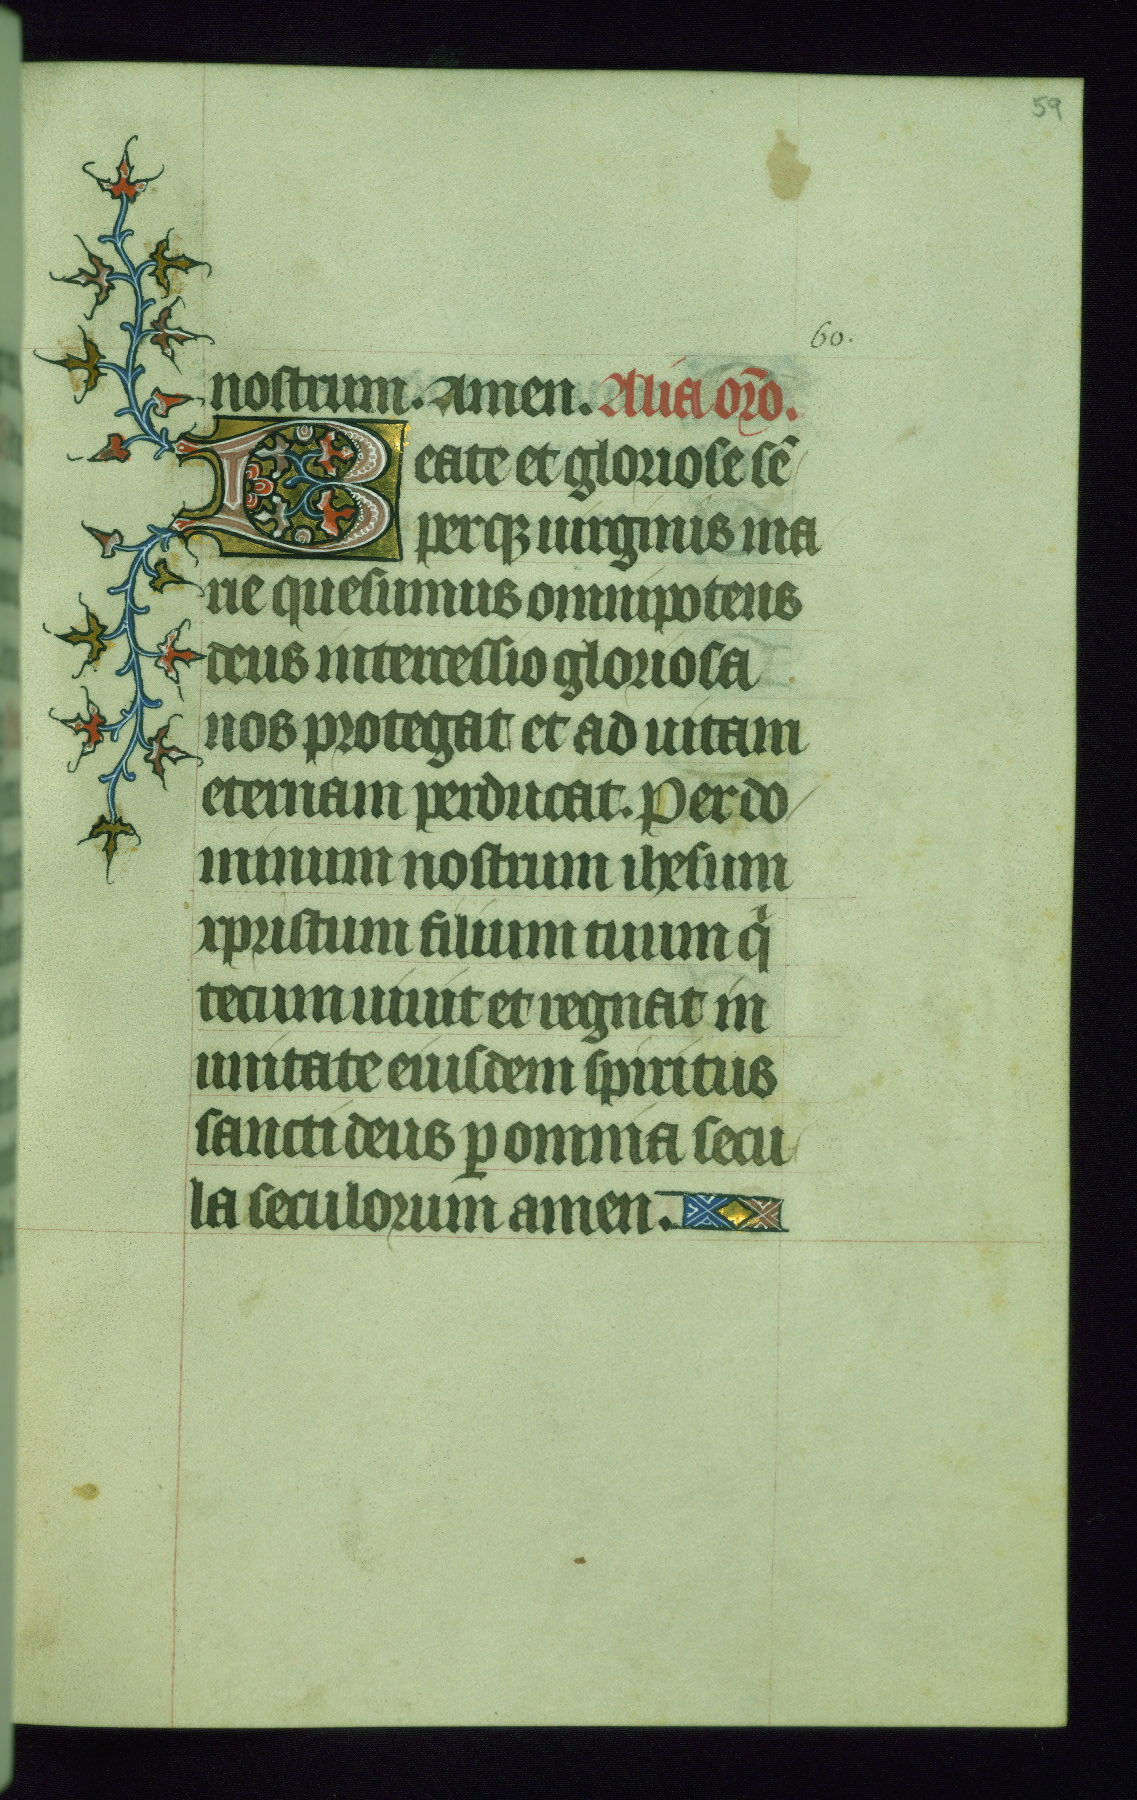 59
60.
nostrum. Amen. Alia or̄o.
Beate et gloriose sē
perqꝫ uirginis ma
rie quesumus omnipotens
deus intercessio gloriosa
nos protegat et ad uitam
eternam perducat. Per do
minum nostrum ihesum
xpristum filium tuum qͥ
tecum uiuit et regnat in
unitate eiusdem spiritus
sancti deus ꝑ omnia secu
la seculorum amen.